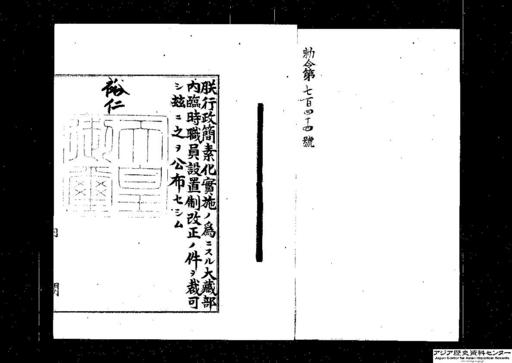 勅令第七百四十四號
朕行政簡素化實施ノ爲ニスル大藏部
内臨時職員設置制改正ノ件ヲ裁可
シ玆ニ之ヲ公布セシム
裕仁
天皇御璽
アジア歴史資料センター
Japan Center for Asian Historical Records